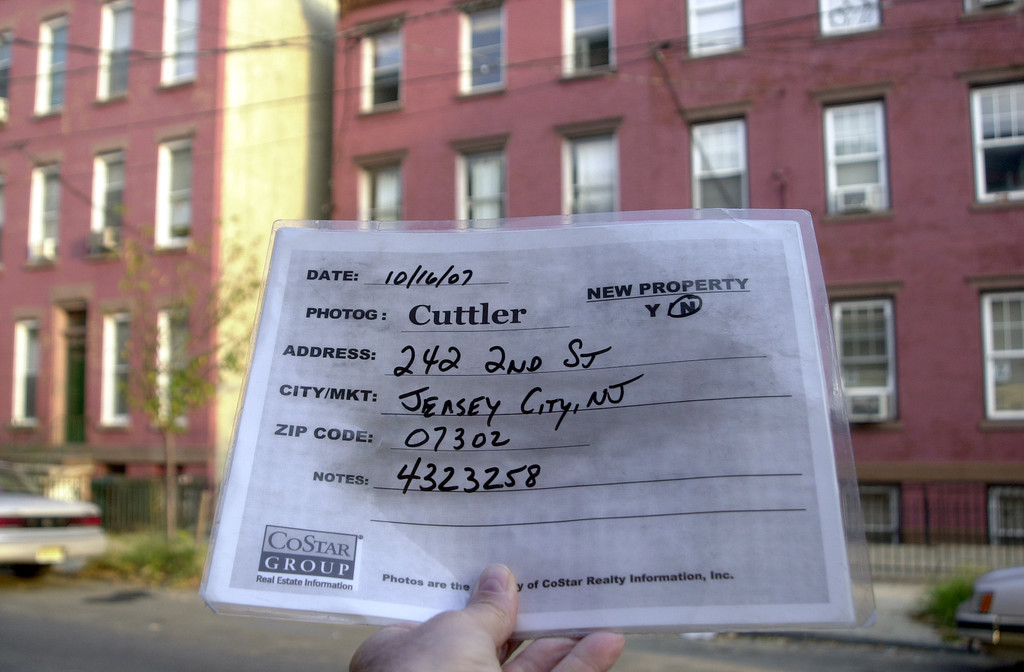 DATE: 10/16/07
NEW PROPERTY
PHOTOG: Cuttler
Y N
ADDRESS: 242 2ND ST
CITY/MKT: JERSEY CITY, NJ
ZIP CODE: 07302
NOTES: 4323258
COSTAR
GROUP
Real Estate Information
Photos are the y of CoStar Realty Information, Inc.